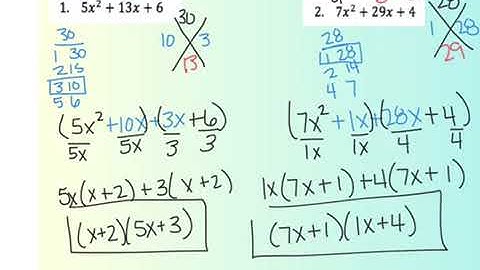 1. 5x² + 13x + 6
30
10 3
13
30
1 30
2 15
3 10
5 6
(5x² + 10x) + (3x + 6)
5x 5x 3 3
5x(x + 2) + 3(x + 2)
(x + 2)(5x + 3)
2. 7x² + 29x + 4
28
1 28
29
28
1 28
2 14
4 7
(7x² + 1x) + (28x + 4)
1x 1x 4 4
1x(7x + 1) + 4(7x + 1)
(7x + 1)(1x + 4)